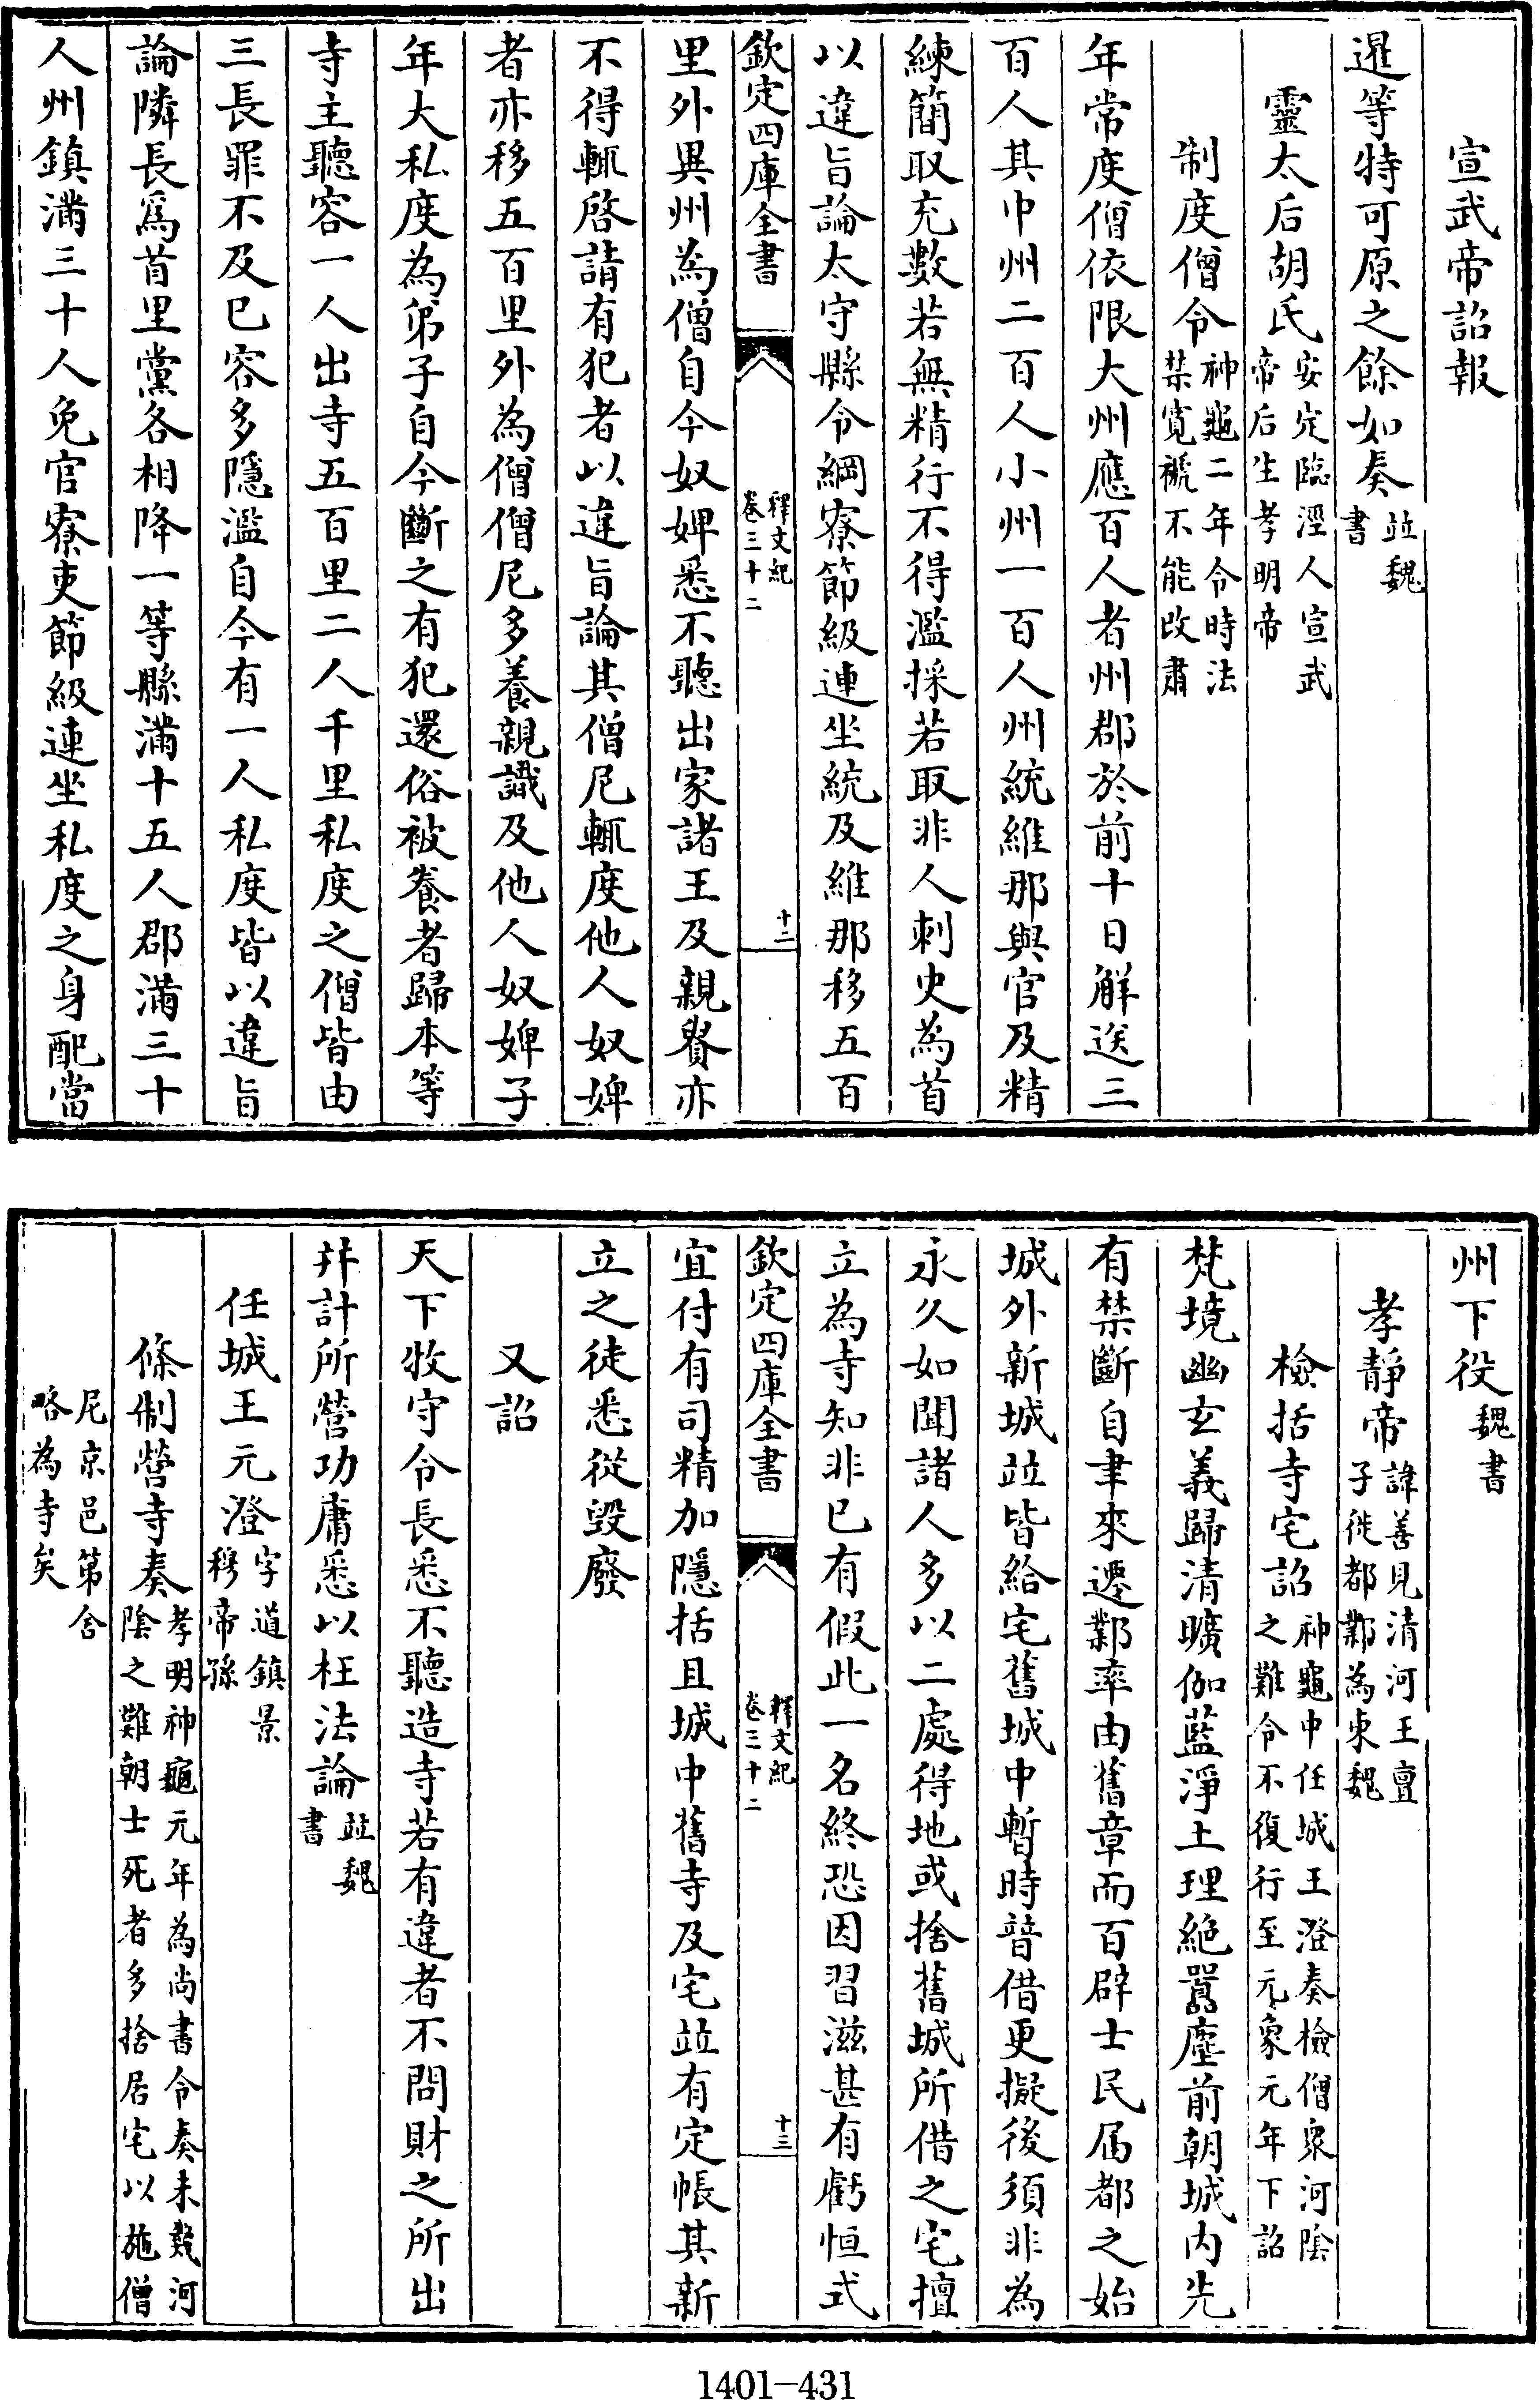 宣武帝詔報
暹等特可原之餘如奏並魏書
靈太后胡氏安定臨涇人宣武帝后生孝明帝
制度僧令神龜二年令時法禁寛褫不能改肅
年常度僧依限大州應百人者州郡於前十日解送三
百人其中州二百人小州一百人州統維那與官及精
練簡取充數若無精行不得濫採若取非人刺史為首
以違旨論太守縣令綱寮節級連坐統及維那移五百
欽定四庫全書
釋文紀
卷三十二
十二
里外異州為僧自今奴婢悉不聽出家諸王及親貴亦
不得輒啓請有犯者以違旨論其僧尼輒度他人奴婢
者亦移五百里外為僧僧尼多養親識及他人奴婢子
年大私度為弟子自今斷之有犯還俗被養者歸本等
寺主聽容一人出寺五百里二人千里私度之僧皆由
三長罪不及已容多隱濫自今有一人私度皆以違旨
論隣長爲首里黨各相降一等縣滿十五人郡滿三十
人州鎮滿三十人免官寮吏節級連坐私度之身配當
州下役魏書
孝靜帝諱善見清河王亶子徙都鄴為東魏
檢括寺宅詔神龜中任城王澄奏檢僧衆河陰之難令不復行至元象元年下詔
梵境幽玄義歸清曠伽藍淨土理絶囂塵前朝城内先
有禁斷自聿來遷鄴率由舊章而百辟士民届都之始
城外新城並皆給宅舊城中暫時普借更擬後須非為
永久如聞諸人多以二處得地或捨舊城所借之宅擅
立為寺知非已有假此一名終恐因習滋甚有虧恒式
欽定四庫全書
釋文紀
卷三十二
十三
宜付有司精加隱括且城中舊寺及宅並有定帳其新
立之徒悉從毀廢
又詔
天下牧守令長悉不聽造寺若有違者不問財之所出
并計所營功庸悉以枉法論並魏書
任城王元澄字道鎮景穆帝孫
條制營寺奏孝明神龜元年為尚書令奏未幾河陰之難朝士死者多捨居宅以施僧
尼京邑第舍略為寺矣
1401-431